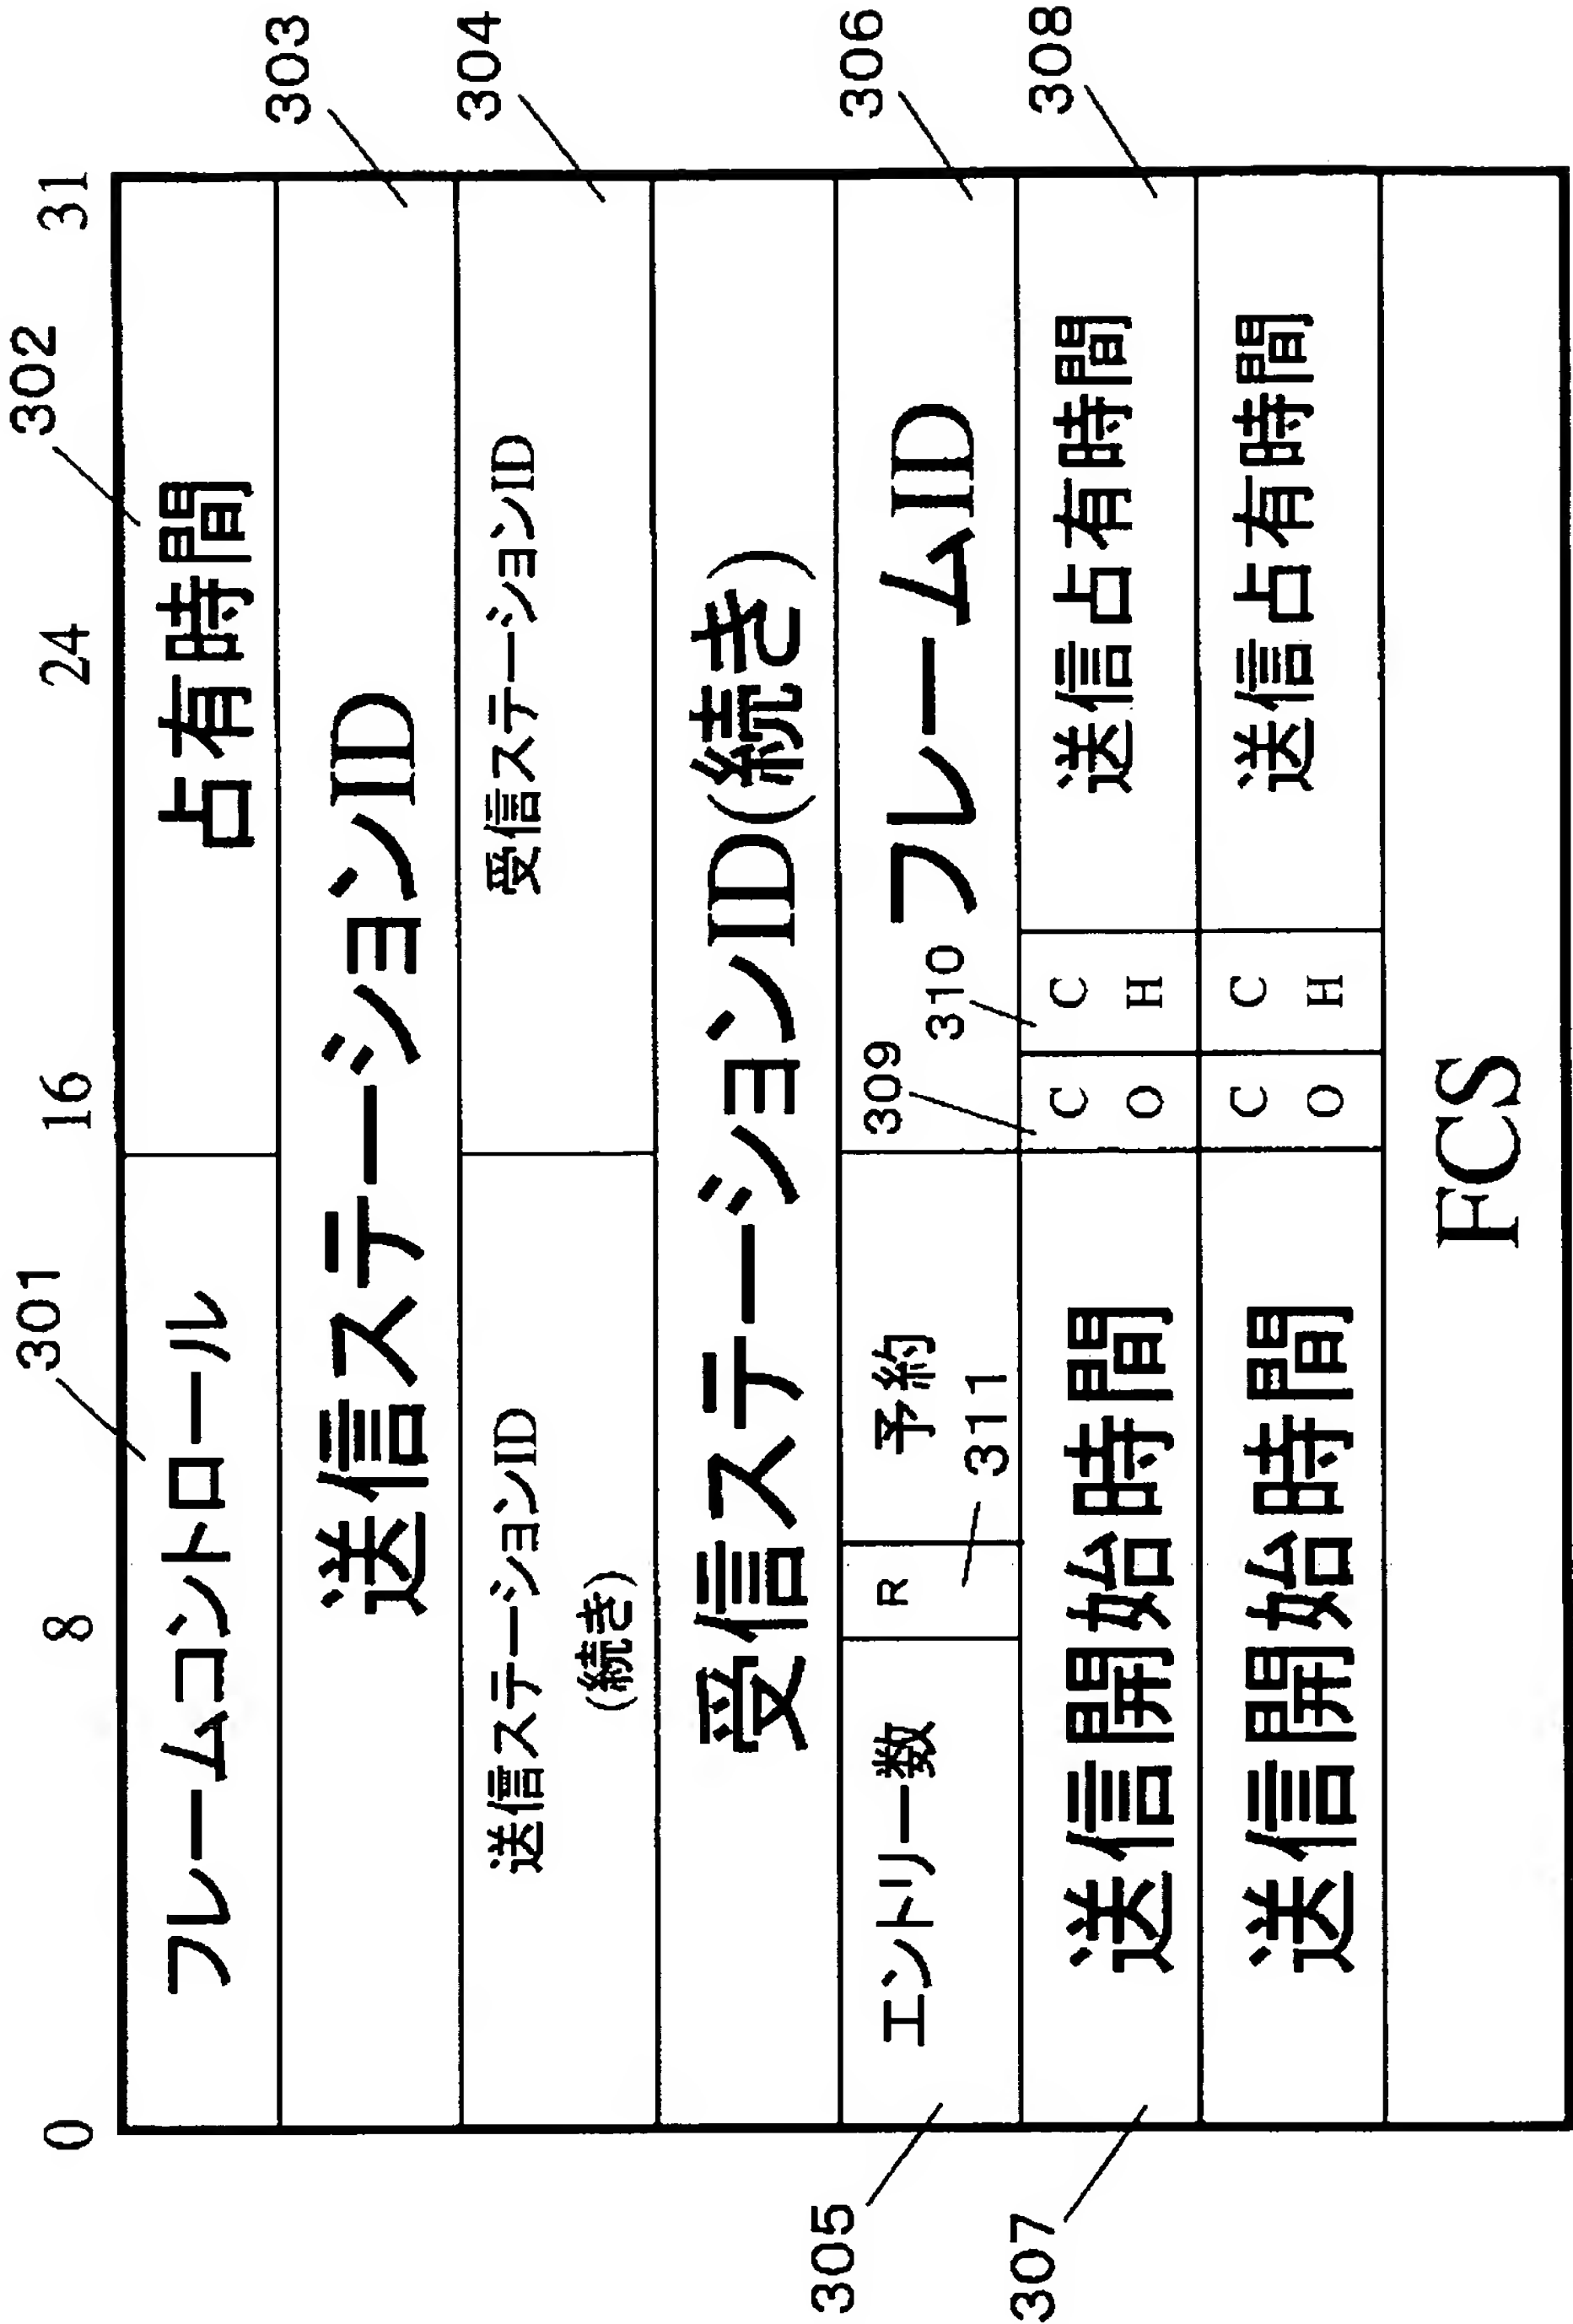 0 8 16 24 31
301 302
フレームコントロール 占有時間
303
送信ステーションID
304
送信ステーションID 受信ステーションID
(続き)
受信ステーションID(続き)
305 306
エントリー数 R 予約 フレームID
311 309 310
307 308
送信開始時間 C O C H 送信占有時間
送信開始時間 C O C H 送信占有時間
FCS